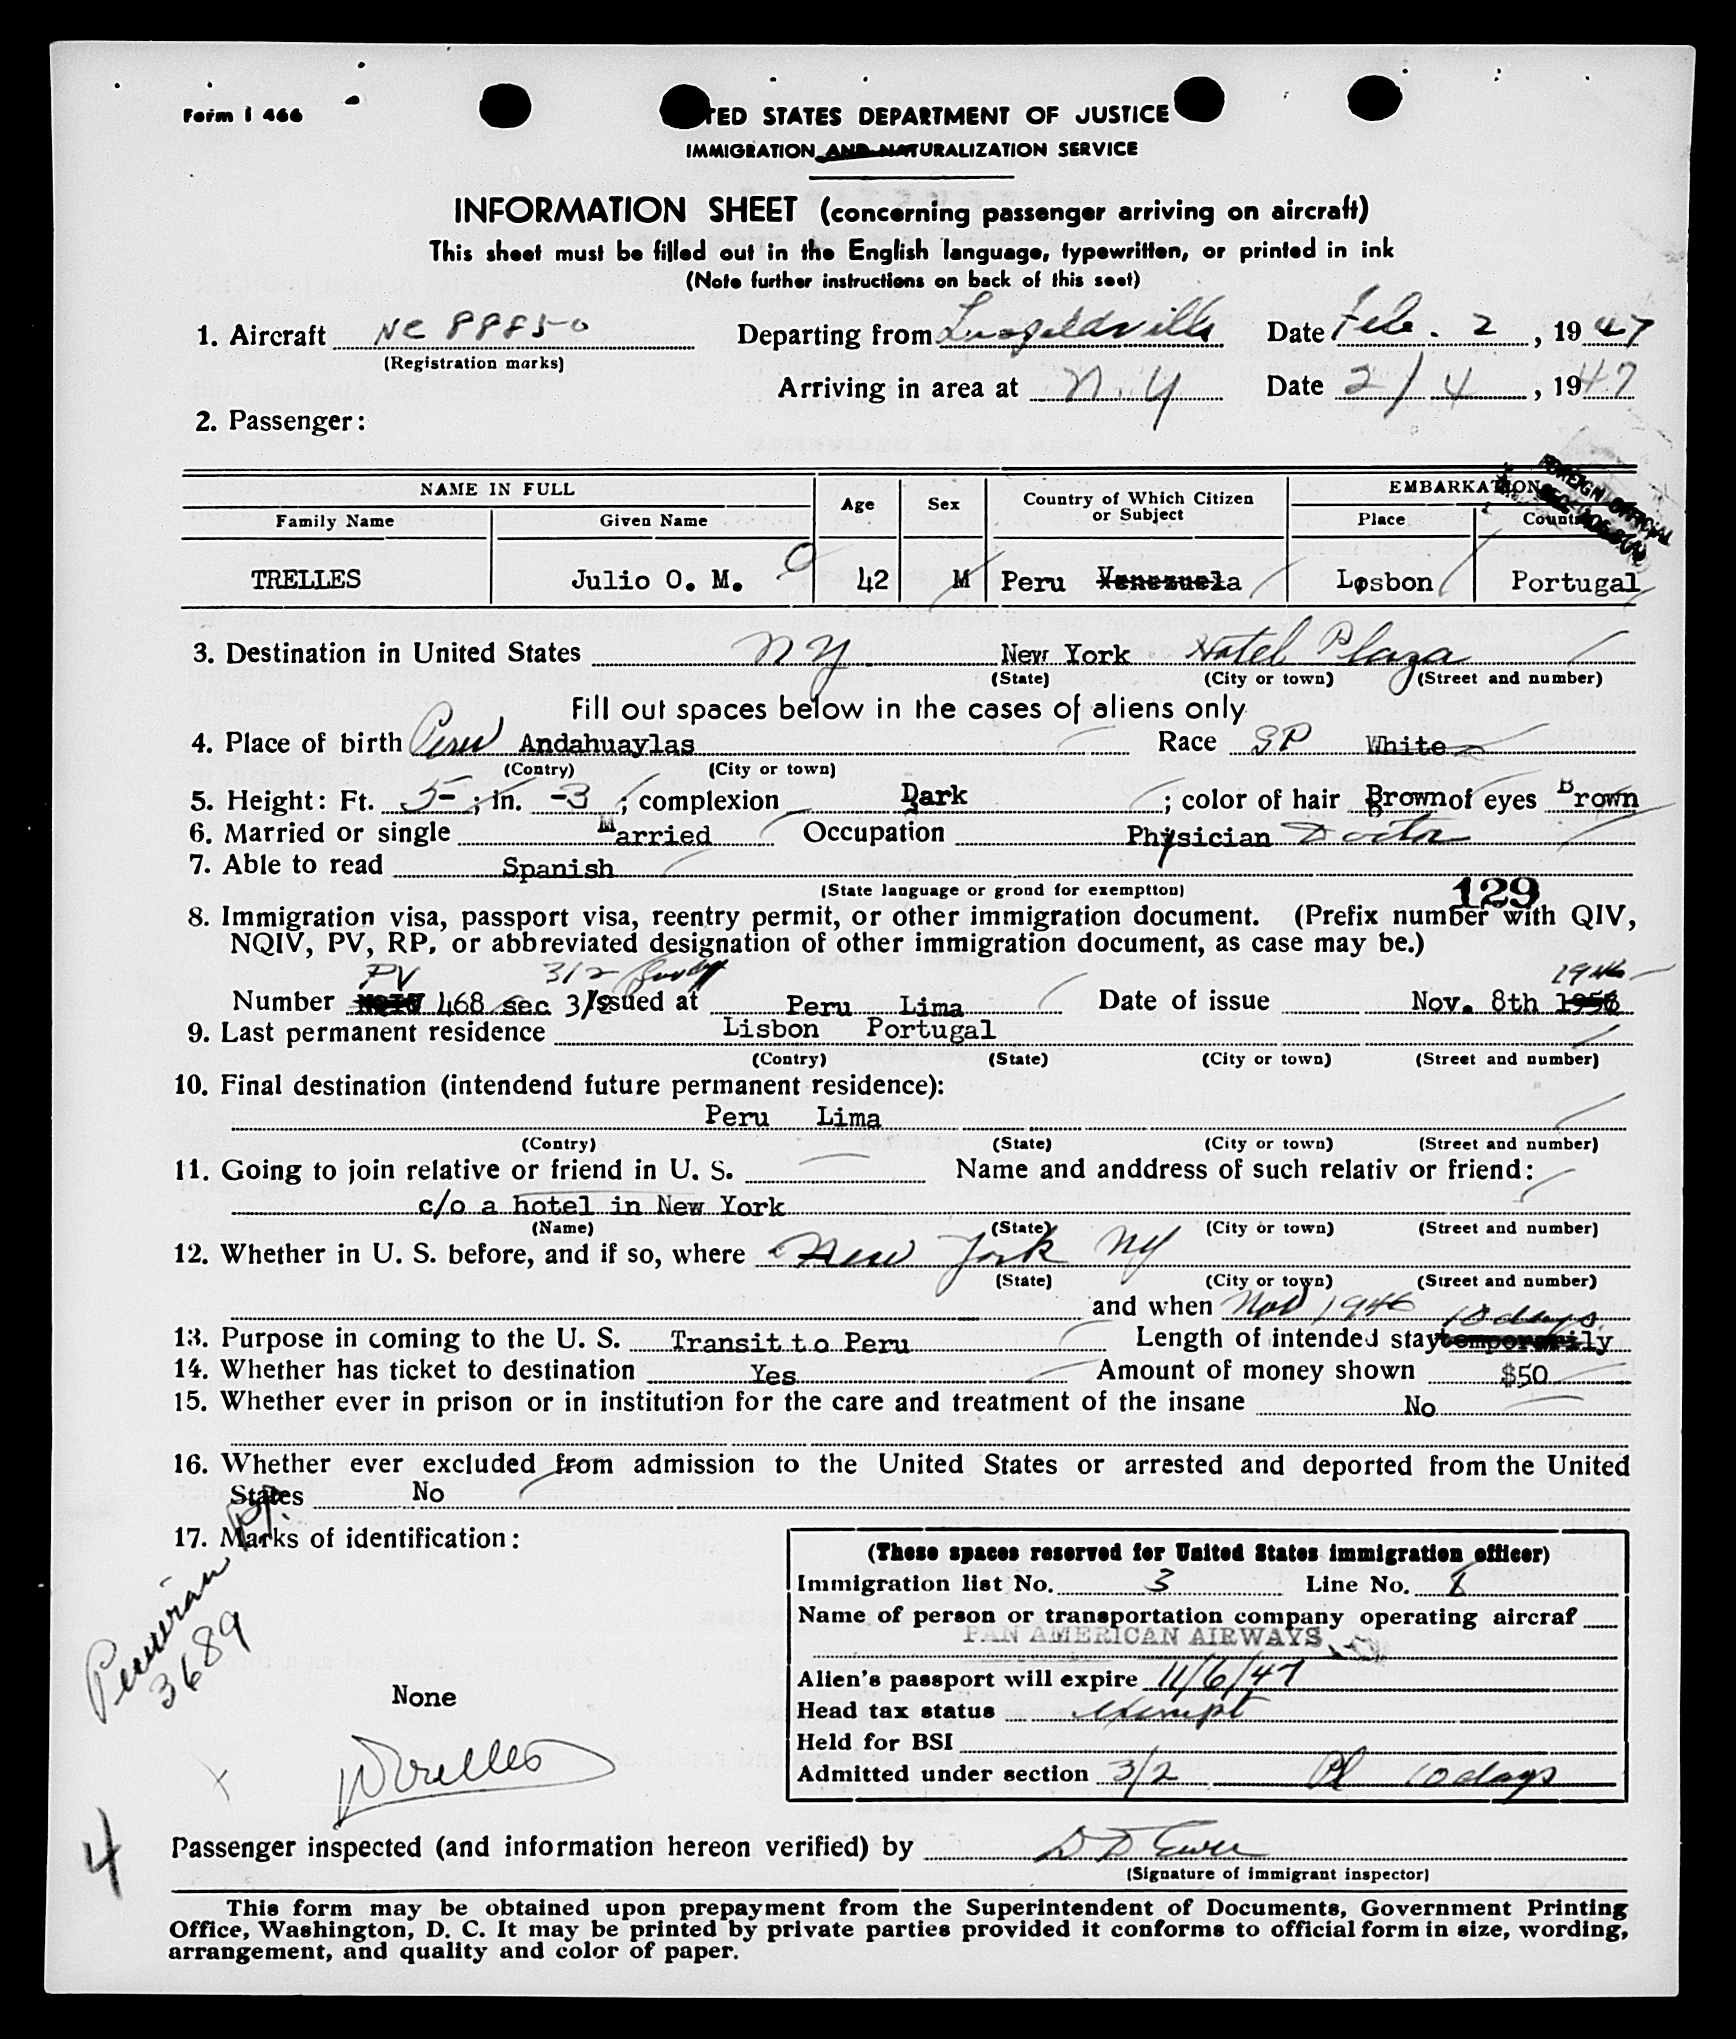 Form I 466
TED STATES DEPARTMENT OF JUSTICE
IMMIGRATION AND NATURALIZATION SERVICE
INFORMATION SHEET (concerning passenger arriving on aircraft)
This sheet must be filled out in the English language, typewritten, or printed in ink
(Note further instructions on back of this seet)
1. Aircraft NC 88850 Departing from Leopoldville Date Feb. 2, 1947
(Registration marks)
Arriving in area at NY Date 2/4, 1947
2. Passenger:
NAME IN FULL Age Sex Country of Which Citizen or Subject EMBARKATION
Family Name Given Name Place Count
FOREIGN OFFICIAL
TRELLES Julio O. M. 42 M Peru Venezuela Lisbon Portugal
3. Destination in United States NY New York Hotel Plaza
(State) (City or town) (Street and number)
Fill out spaces below in the cases of aliens only
4. Place of birth Peru Andahuaylas Race SP White
(Contry) (City or town)
5. Height: Ft. 5-; in. -3; complexion Dark; color of hair Brown of eyes Brown
6. Married or single Married Occupation Physician Doctor
7. Able to read Spanish
(State language or grond for exemptton)
129
8. Immigration visa, passport visa, reentry permit, or other immigration document. (Prefix number with QIV,
NQIV, PV, RP, or abbreviated designation of other immigration document, as case may be.)
PV 3/2 1946
Number 468 sec 3/2 Issued at Peru Lima Date of issue Nov. 8th
9. Last permanent residence Lisbon Portugal
(Contry) (State) (City or town) (Street and number)
10. Final destination (intendend future permanent residence):
Peru Lima
(Contry) (State) (City or town) (Street and number)
11. Going to join relative or friend in U. S. Name and anddress of such relativ or friend:
c/o a hotel in New York
(Name) (State) (City or town) (Street and number)
12. Whether in U. S. before, and if so, where New York NY
(State) (City or town) (Street and number)
and when Nov 1946
10 days
13. Purpose in coming to the U. S. Transit to Peru Length of intended stay temporarily
14. Whether has ticket to destination Yes Amount of money shown $50
15. Whether ever in prison or in institution for the care and treatment of the insane No
16. Whether ever excluded from admission to the United States or arrested and deported from the United
States No
17. Marks of identification:
Peruvian PP.
3689
None
(These spaces reserved for United States immigration officer)
Immigration list No. 3 Line No. 8
Name of person or transportation company operating aircraf
PAN AMERICAN AIRWAYS
Alien's passport will expire 11/6/47
Head tax status exempt
Held for BSI
Admitted under section 3/2 Pl 10 days
JTrelles
4
Passenger inspected (and information hereon verified) by
(Signature of immigrant inspector)
This form may be obtained upon prepayment from the Superintendent of Documents, Government Printing
Office, Washington, D. C. It may be printed by private parties provided it conforms to official form in size, wording,
arrangement, and quality and color of paper.